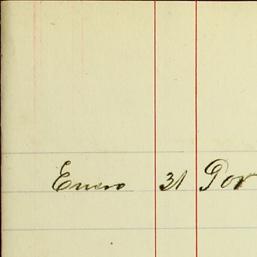 Enero 31 Por